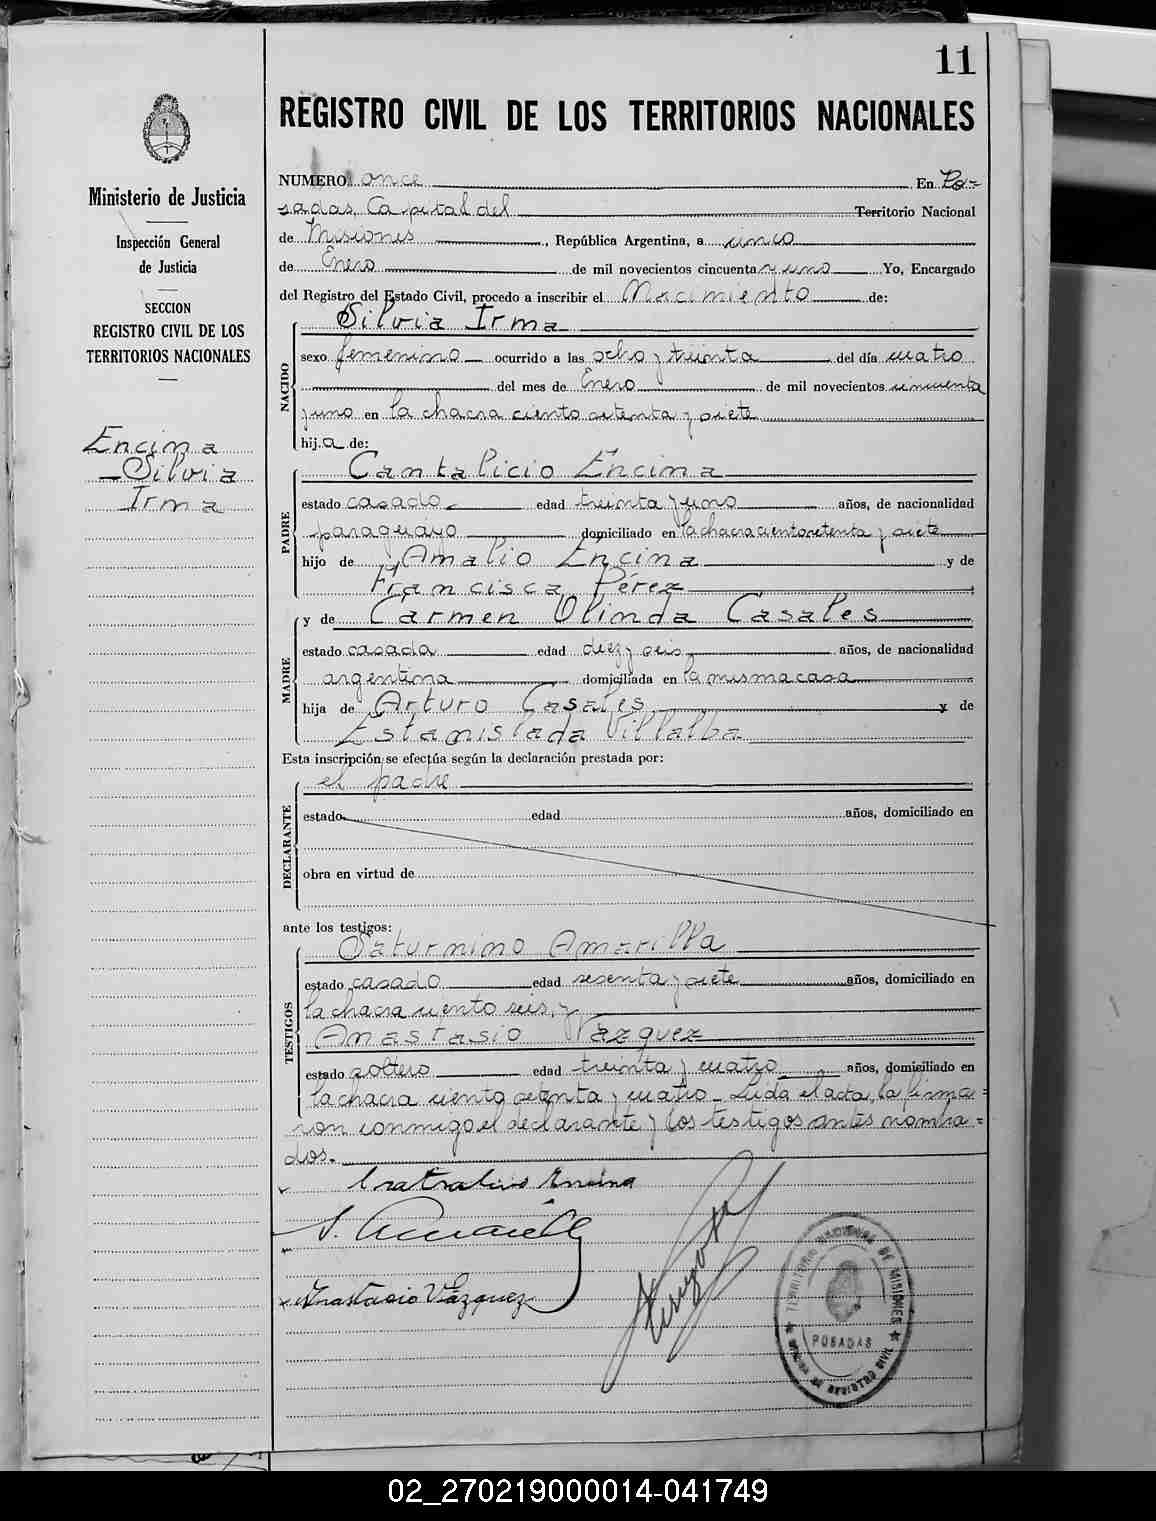 11
REGISTRO CIVIL DE LOS TERRITORIOS NACIONALES
Ministerio de Justicia
Inspección General
de Justicia
SECCION
REGISTRO CIVIL DE LOS
TERRITORIOS NACIONALES
Encina
Silvia
Irma
NUMERO once En Po-
sadas, Capital del Territorio Nacional
de Misiones, República Argentina, a cinco
de Enero de mil novecientos cincuenta y uno Yo, Encargado
del Registro del Estado Civil, procedo a inscribir el Nacimiento de:
NACIDO
Silvia Irma
sexo femenino ocurrido a las ocho y treinta del día cuatro
del mes de Enero de mil novecientos cincuenta
y uno en la chacra ciento setenta y siete
hija de:
PADRE
Cantalicio Encina
estado casado edad treinta y uno años, de nacionalidad
paraguayo domiciliado en la chacra ciento setenta y siete
hijo de Amalio Encina y de
Francisca Pérez
MADRE
y de Carmen Olinda Casales
estado casada edad diez y seis años, de nacionalidad
argentina domiciliada en la misma casa
hija de Arturo Casales y de
Estanislada Villalba
Esta inscripción se efectúa según la declaración prestada por:
DECLARANTE
el padre
estado edad años, domiciliado en
obra en virtud de
ante los testigos:
TESTIGOS
Saturnino Amarilla
estado casado edad sesenta y siete años, domiciliado en
la chacra ciento seis, y
Anastasio Vázquez
estado soltero edad treinta y cuatro años, domiciliado en
la chacra ciento setenta y cuatro - Leida el acta, la firma=
ron conmigo el declarante y los testigos antes nombra=
dos.-
Encina
S. Amarilla
Anastacio Vázquez
TERRITORIO NACIONAL DE MISIONES
POSADAS
OFICINA DE REGISTRO CIVIL
02_270219000014-041749